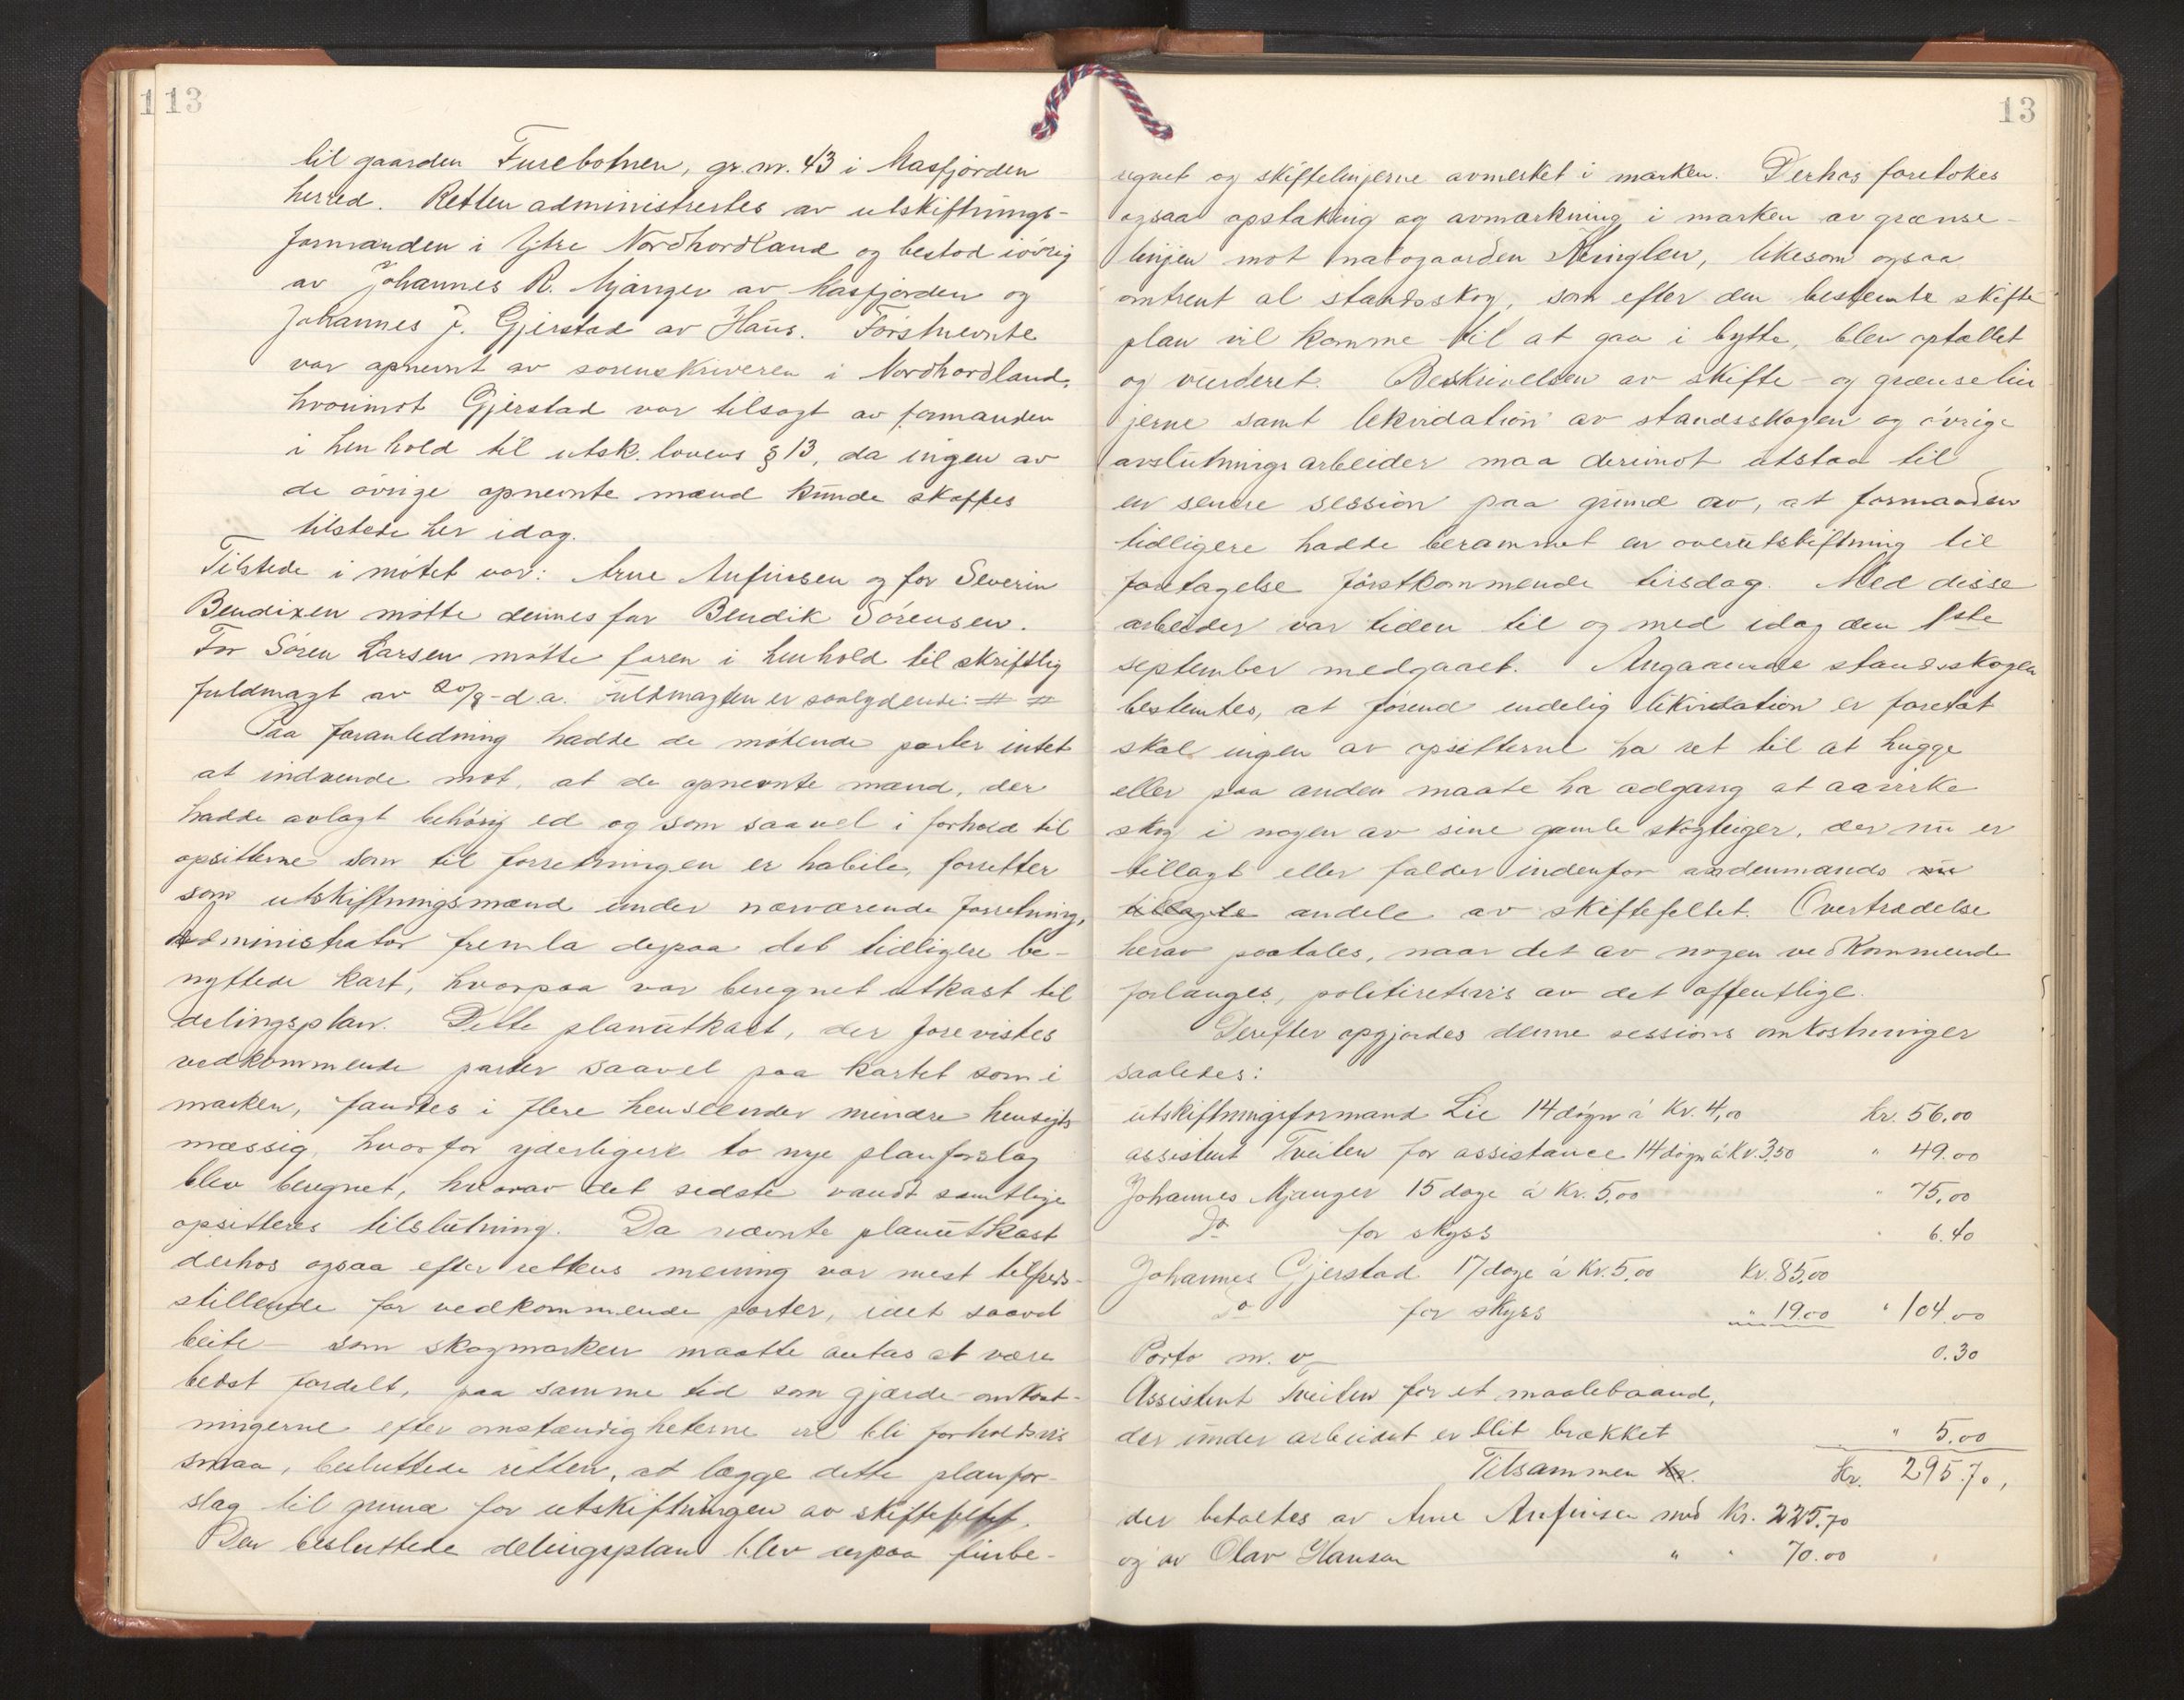 113
til gaarden Furebotnen, gr. nr. 43 i Masfjorden
herred. Retten administrertes av utskiftnings-
formanden i Ytre Nordhordland og bestod iøvrig
av Johannes R. Mjanger av Masfjorden og
Johannes J. Gjerstad av Haus. Førstnevnte
var opnevnt av sorenskriveren i Nordhordland,
hvorimot Gjerstad var tilsagt av formanden
i henhold til utsk. lovens § 13, da ingen av
de øvrige opnevnte mænd kunde skaffes
tilstede her idag.
Tilstede i møtet var: Arne Anfinsen og for Severin
Bendixen møtte dennes far Bendik Sørensen.
For Søren Larsen møtte faren i henhold til skriftlig
fuldmagt av 20/8 d.a. Fuldmagten er saalydende: # #
Paa foranledning hadde de møtende parter intet
at indvende mot, at de opnevnte mænd, der
hadde avlagt behørig ed og som saavel i forhold til
opsitterne som til forretningen er habile, forretter
som utskiftningsmænd under nærværende forretning.
Administrator fremla derpaa det tidligere be-
nyttede kart, hvorpaa var beregnet utkast til
delingsplan. Dette planutkast, der forevistes
vedkommende parter saavel paa kartet som i
marken, fandtes i flere henseender mindre hensigts-
mæssig, hvorfor yderligere to nye planforslag
blev beregnet, hvorav det sidste vandt samtlige
opsitteres tilslutning. Da nævnte planutkast
derhos ogsaa efter rettens mening var mest tilfreds-
stillende for vedkommende parter, idet saavel
beite- som skogmarken maatte antas at være
bedst fordelt, paa samme tid som gjærde-omkost-
ningerne efter omstændigheterne vil bli forholdsvis
smaa, besluttede retten, at lægge dette planfor-
slag til grund for utskiftningen av skiftefeltet.
Den besluttede delingsplan blev derpaa finbe-
13
regnet og skiftelinjerne avmerket i marken. Derhos foretokes
ogsaa opstakning og avmarkning i marken av grænse-
linjen mot nabogaarden Kvinglen, likesom ogsaa
omtrent al standsskog, som efter den bestemte skifte
plan vil komme til at gaa i bytte, blev optallet
og vurderet. Beskrivelsen av skifte- og grænselin
jerne samt likvidation av standsskogen og øvrige
avslutningsarbeider maa derimot utstaa til
en senere session paa grund av, at formanden
tidligere hadde berammet en overutskiftning til
foretagelse førstkommende tirsdag. Med disse
arbeider var tiden til og med idag den 1ste
september medgaaet. Angaaende standsskogen
bestemtes, at førend endelig likvidation er foretat
skal ingen av opsitterne ha ret til at hugge
eller paa anden maate ha adgang at aavirke
skog i nogen av sine gamle skogteiger, der nu er
tillagt eller falder indenfor andenmands nu
tillagte andele av skiftefeltet. Overtrædelse
herav paatales, naar det av nogen vedkommende
forlanges, politiretsvis av det offentlige.
Derefter opgjordes denne sessions omkostninger
saaledes:
utskiftningsformand Lie 14 døgn á Kr. 4,00 kr. 56.00
assistent Tveiten for assistance 14 døgn á Kr. 3,50 " 49.00
Johannes Mjanger 15 dage á Kr. 5,00 " 75,00
Do for skyss " 6.40
Johannes Gjerstad 17 dage á Kr. 5,00 Kr. 85,00
Do for skyss " 19.00 " 104.00
Porto m. v. 0.30
Assistent Tveiten for et maalebaand,
der under arbeidet er blit brækket " 5.00
Tilsammen kr. Kr. 295.70,
der betaltes av Arne Anfinsen med Kr. 225.70
og av Olav Hansen " " 70.00